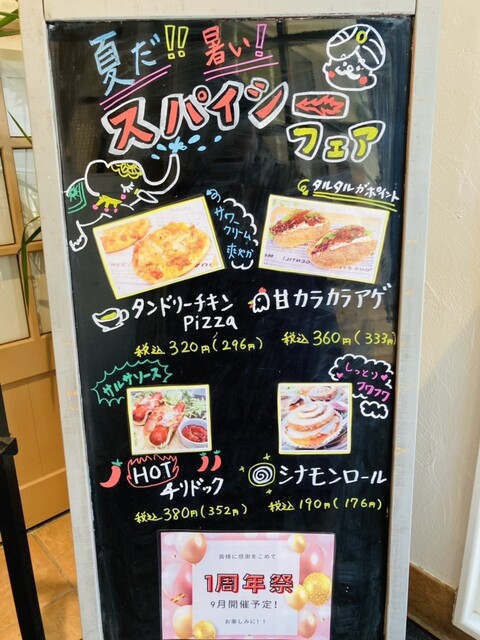 夏だ!! 暑い!
スパイシー
フェア
サワー
クリーム
爽やか
タルタルがポイント
タンドリーチキン
Pizza
税込 320円(296円)
甘カラカラアゲ
税込 360円(333円)
サルサソース
HOT
チリドック
税込 380円(352円)
しっとり
フワフワ
シナモンロール
税込 190円(176円)
皆様に感謝をこめて
1周年祭
9月開催予定!
お楽しみに!!